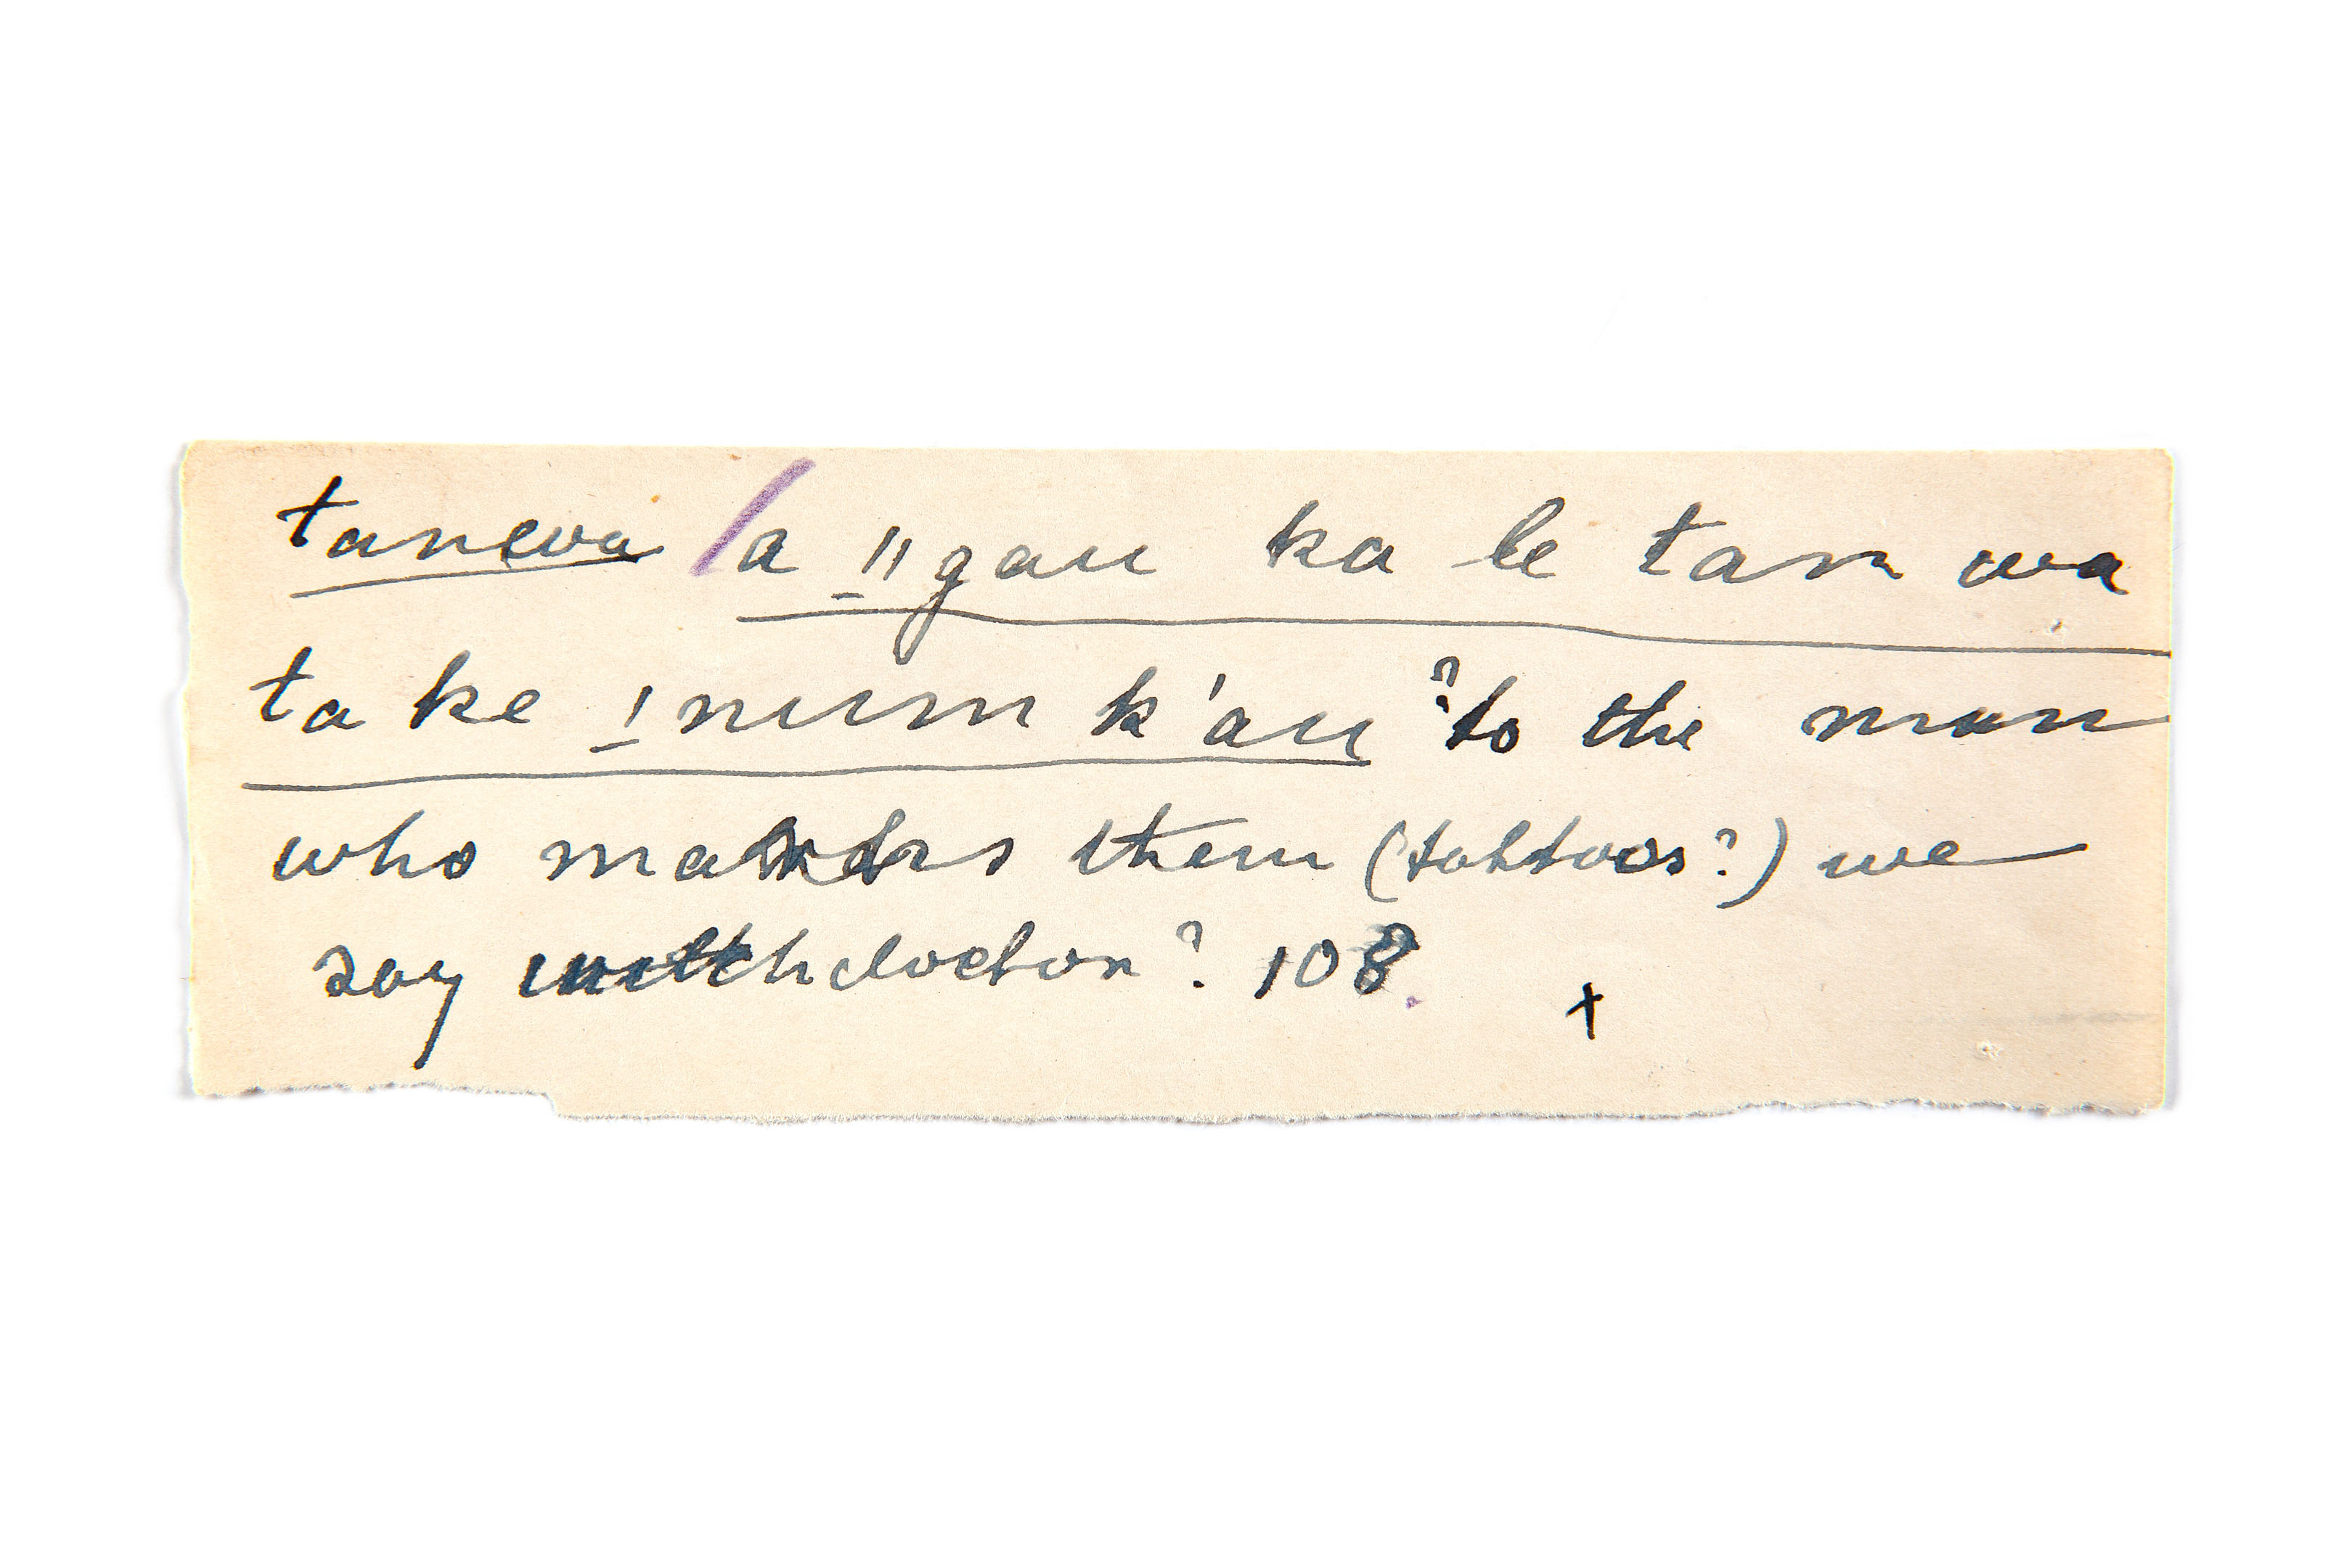 taneva / a ǁgau ka le tan wa
ta ke ǀnum k'au ? to the man
who makes them (tattoos?) we
say witchdoctor? 108.
x